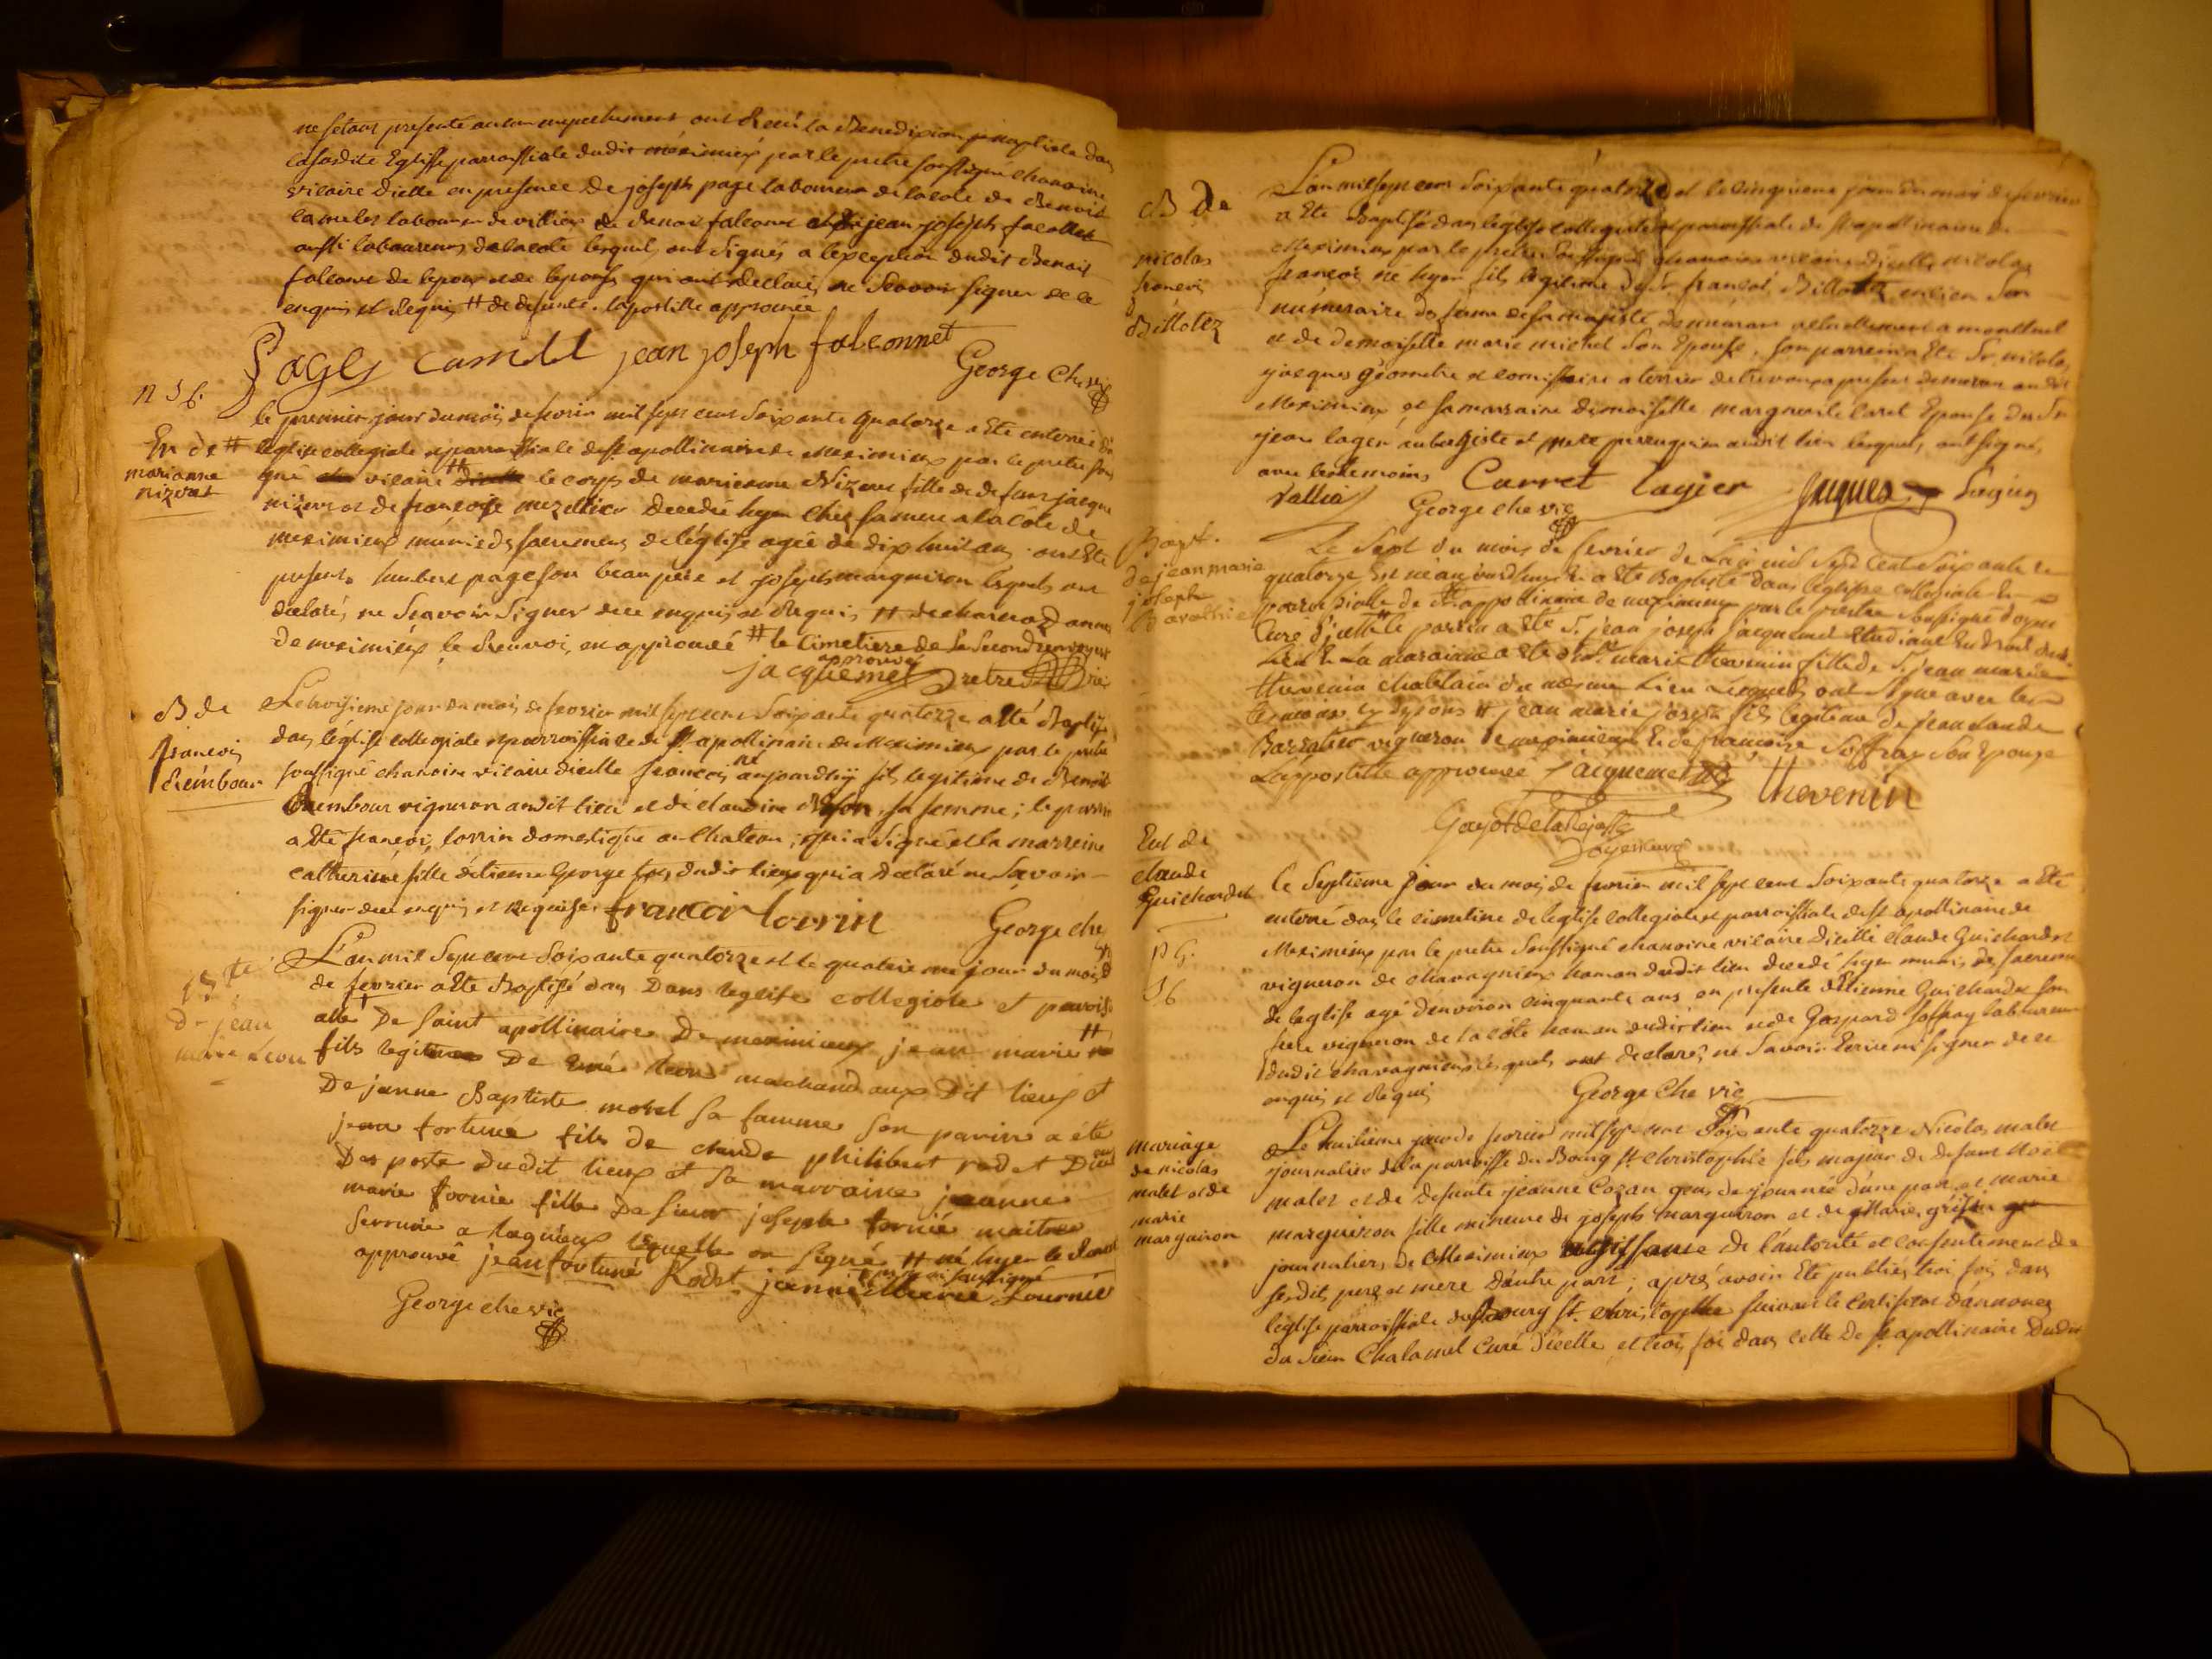 ne setant presenté aucun empechement ont Recu la Benediction nuptiale dans
la susdite Eglise parroissiale dudit meximieux par le pretre soussigné chanoine
vicaire dicelle en presence de joseph page laboureur de la cote de Benoit
camelet laboureur de villieu de Benoit falconet et de jean joseph falconet
aussi laboureurs de la cote lesquels ont signés a l'exception dudit Benoit
falconet de lepoux et de lepouse qui ont declaré ne scavoir signer de ce
enquis et Requis # de defunte. lapostille approuvée
Pages camelet jean joseph falconnet
George che vic
le premier jour du mois de fevrier mil sept cent soixante quatorze a Eté enterrée dans
En de #
marianne
nizeret
leglise collegiale et parroissiale de st apollinaire de Meximieux par le pretre sous
gné vicaire # le corps de marianne Nizeret fille de defunt jacque
nizeret et de françoise mezellier decedée hyer chez sa mere a la côte de
meximieux munie des sacrements de l'église agée de dix huit ans ont Eté
presents humbert page son beau pere et joseph marguiron lesquels ont
declaré ne scavoir signer de ce enquis et Requis
de meximieux le Renvoi en approuvé # le cimetiere de le second renvoy
approuvé
jacquemet pretre
B de
francois
Reimbour
Le troisieme jour du mois de fevrier mil sept cent soixante quatorze a été Baptisé
dans léglise collegiale et parroissiale de st apollinaire de Meximieux par le pretre
soussigné chanoine vicaire dicelle francois né aujourdhuy fils legitime de Benoit
Reimbour vigneron audit lieu et de claudine sa femme; le parrin
a Eté francois lorrin domestique au chateau; qui a signé et la marreine
catherine fille détienne George dudit lieu qui a declaré ne savoir
signer de ce enquis et Requise. francoi lorrin
George che
Bte
de jean
marie Leon
L'an mil sept cent soixante quatorze et le quatrieme jour du mois
de fevrier a Eté Baptisé dans Dans leglise collegiale et parois
alle De saint apollinaire De meximieux jean marie #
fils legitime De Léon marchand aux Dit lieux et
De janne Baptiste morel sa famme son parin a été
jean fortuné fils de claude philibert rodet Direc
Des poste dudit lieux et sa marraine jeanne
marie fornié fille De sieur joseph fornié maitre
serrurie a lagnieux lequelle on signé # né hyer le Renvoi
approuvé jean fortuné Rodet jeanne Marie Fournié
George che vic
B De
nicolas
francois
Billotez
L'an mil sept cent soixante quatorze et le cinquieme jour du mois de fevrier
a Eté Baptisé dans leglise collegiale et parroissiale de st apollinaire de
Meximieux par le pretre soussigné chanoine vicaire dicelle nicolas
francois né hyer fils legitime de Sr. francois Billotez ancien
numeraire de de sa majesté demeurant actuellement a montluel
et de demoiselle marie michel son Epouse. son parrein a Eté Sr. nicolas
jacques géometre et comissaire a terrier de trevoux a present demeurant audit
Meximieux et sa marraine demoiselle marguerite carret Epouse du Sr
jean lagier aubergiste et perruquier audit lieu lesquels ont signé,
avec les temoins Carret Lagier Jaques
Vallia
George che vic
Bapt.
de jean marie
joseph
Baratier
Le Sept du mois de fevrier de l'an mil sept cent soixante et
quatorze est né aujourdhuy et a eté Baptisé dans léglise collegiale et
paroissiale de St appolinaire de meximieux par le pretre soussigné doyen
Curé d'icelle le parrin a eté Sr jean joseph jacquemet etudiant en droit dudit
Lieu et La maraine a eté marie thevenin fille de Sr jean marie
thevenin chatelain du mesme Lieu Lesquels ont signe avec les
temoins # jean marie joseph fils legitime de jean claude
Barratier vigneron de meximieux et de francoise Soffray son Epouse
Lappostille approuvée jacquemet thevenin
Doyen curé
Ent de
claude
Guichardet
Le Septieme jour du mois de fevrier mil sept cent soixante quatorze a Eté
enterré dans le cimetiere de leglise collegiale et parroissiale de st apollinaire de
Meximieux par le pretre soussigné chanoine vicaire Dicelle claude Guichardet
vigneron de chavagnieux hameau dudit lieu decedé hyer muni des sacrements
de leglise agé denviron cinquante ans en presence d'Etienne Guichardet son
frere vigneron de la côte hameau dudit lieu et de Gaspard soffray laboureur
dudit chavagnieux lesquels ont declarés ne savoir Ecrire ni signer de ce
enquis et Requis
George Che vic
mariage
de nicolas
malet et de
marie
marguiron
Le huitieme jour de fevrier mil sept cent soixante quatorze Nicolas malet
journalier de la parroisse du Bourg st. christophle fils majeur de defunt
malet et de defunte jeanne Cozan gens de journée dune part et marie
marguiron fille mineure de joseph marguiron et de Marie
journaliers de Meximieux de l'autorité et consentement de
sesdits pere et mere Dautre part; aprés avoir Eté publiés trois fois dans
léglise parroissiale du Bourg st. christophle suivant le certificat dannonces
du Sieur Chalamel Curé dicelle et trois fois dans celle de st. apollinaire Dudit